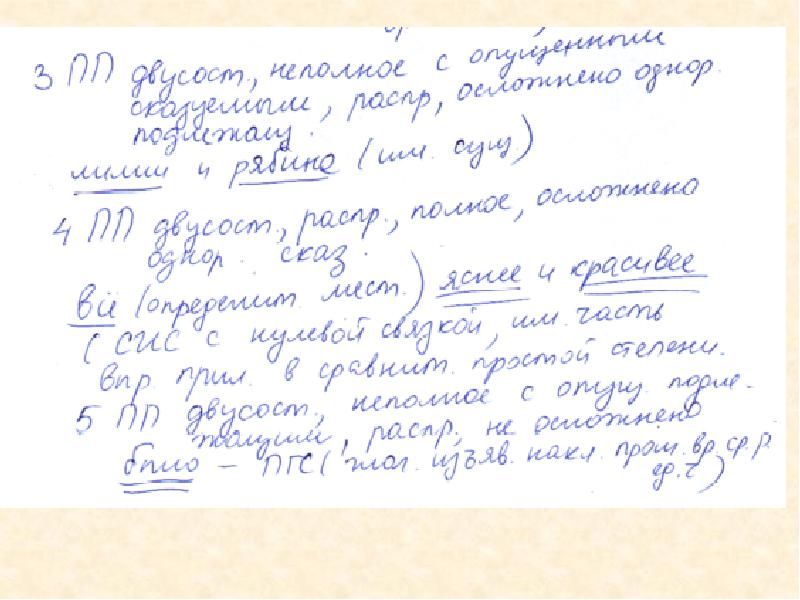 3 ПП двусост., неполное с опущенными
сказуемым, распр, осложнено однор.
подлежащ.
лилии и рябина (им. сущ)
4 ПП двусост., распр., полное, осложнено
однор. сказ.
Всё (определит. мест.) яснее и красивее
(СИС с нулевой связкой, им. часть
впр. прил. в сравнит. простой степени.
5 ПП двусост., неполное с опущ. подле-
жащим, распр. не осложнено
было – ПГС (глаг. изъяв. накл. прош. вр. ср. р.
ед. ч)